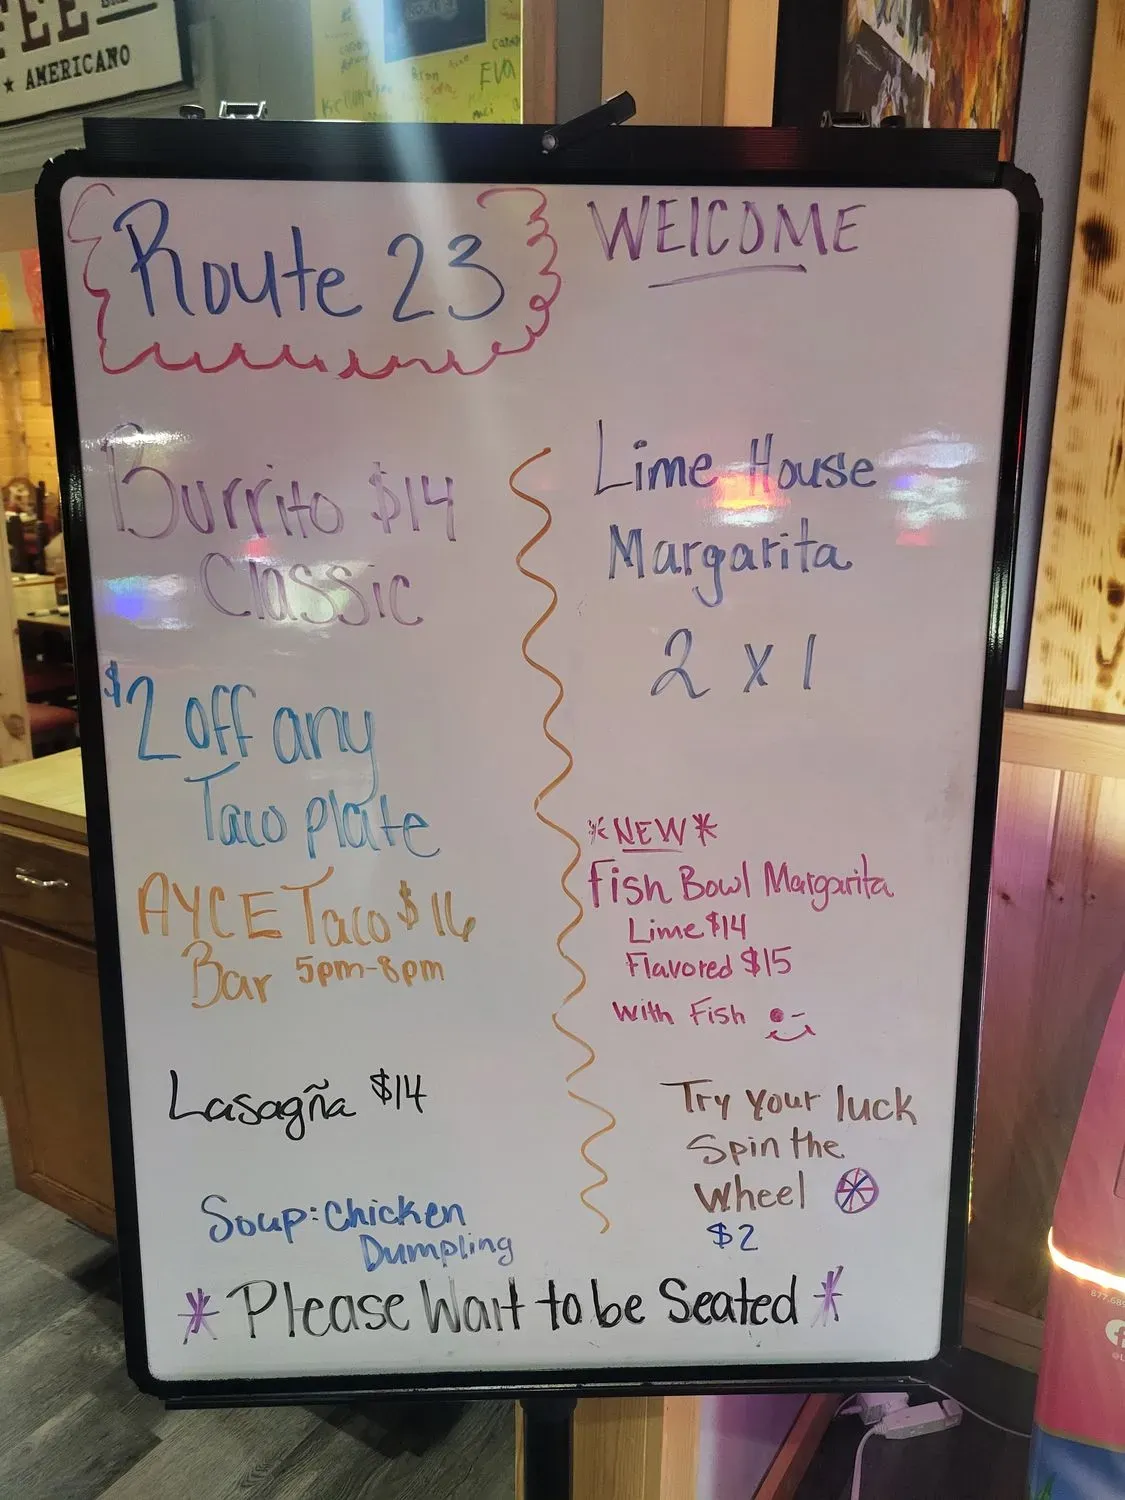 AMERICANO
EVA
Route 23
WELCOME
Burrito $14
Classic
$2 off any
Taco plate
AYCE Taco $16
Bar 5pm-8pm
Lasagña $14
Soup: Chicken
Dumpling
Lime House
Margarita
2 x 1
*NEW*
Fish Bowl Margarita
Lime $14
Flavored $15
with Fish
Try your luck
Spin the
Wheel
$2
*Please Wait to be Seated*